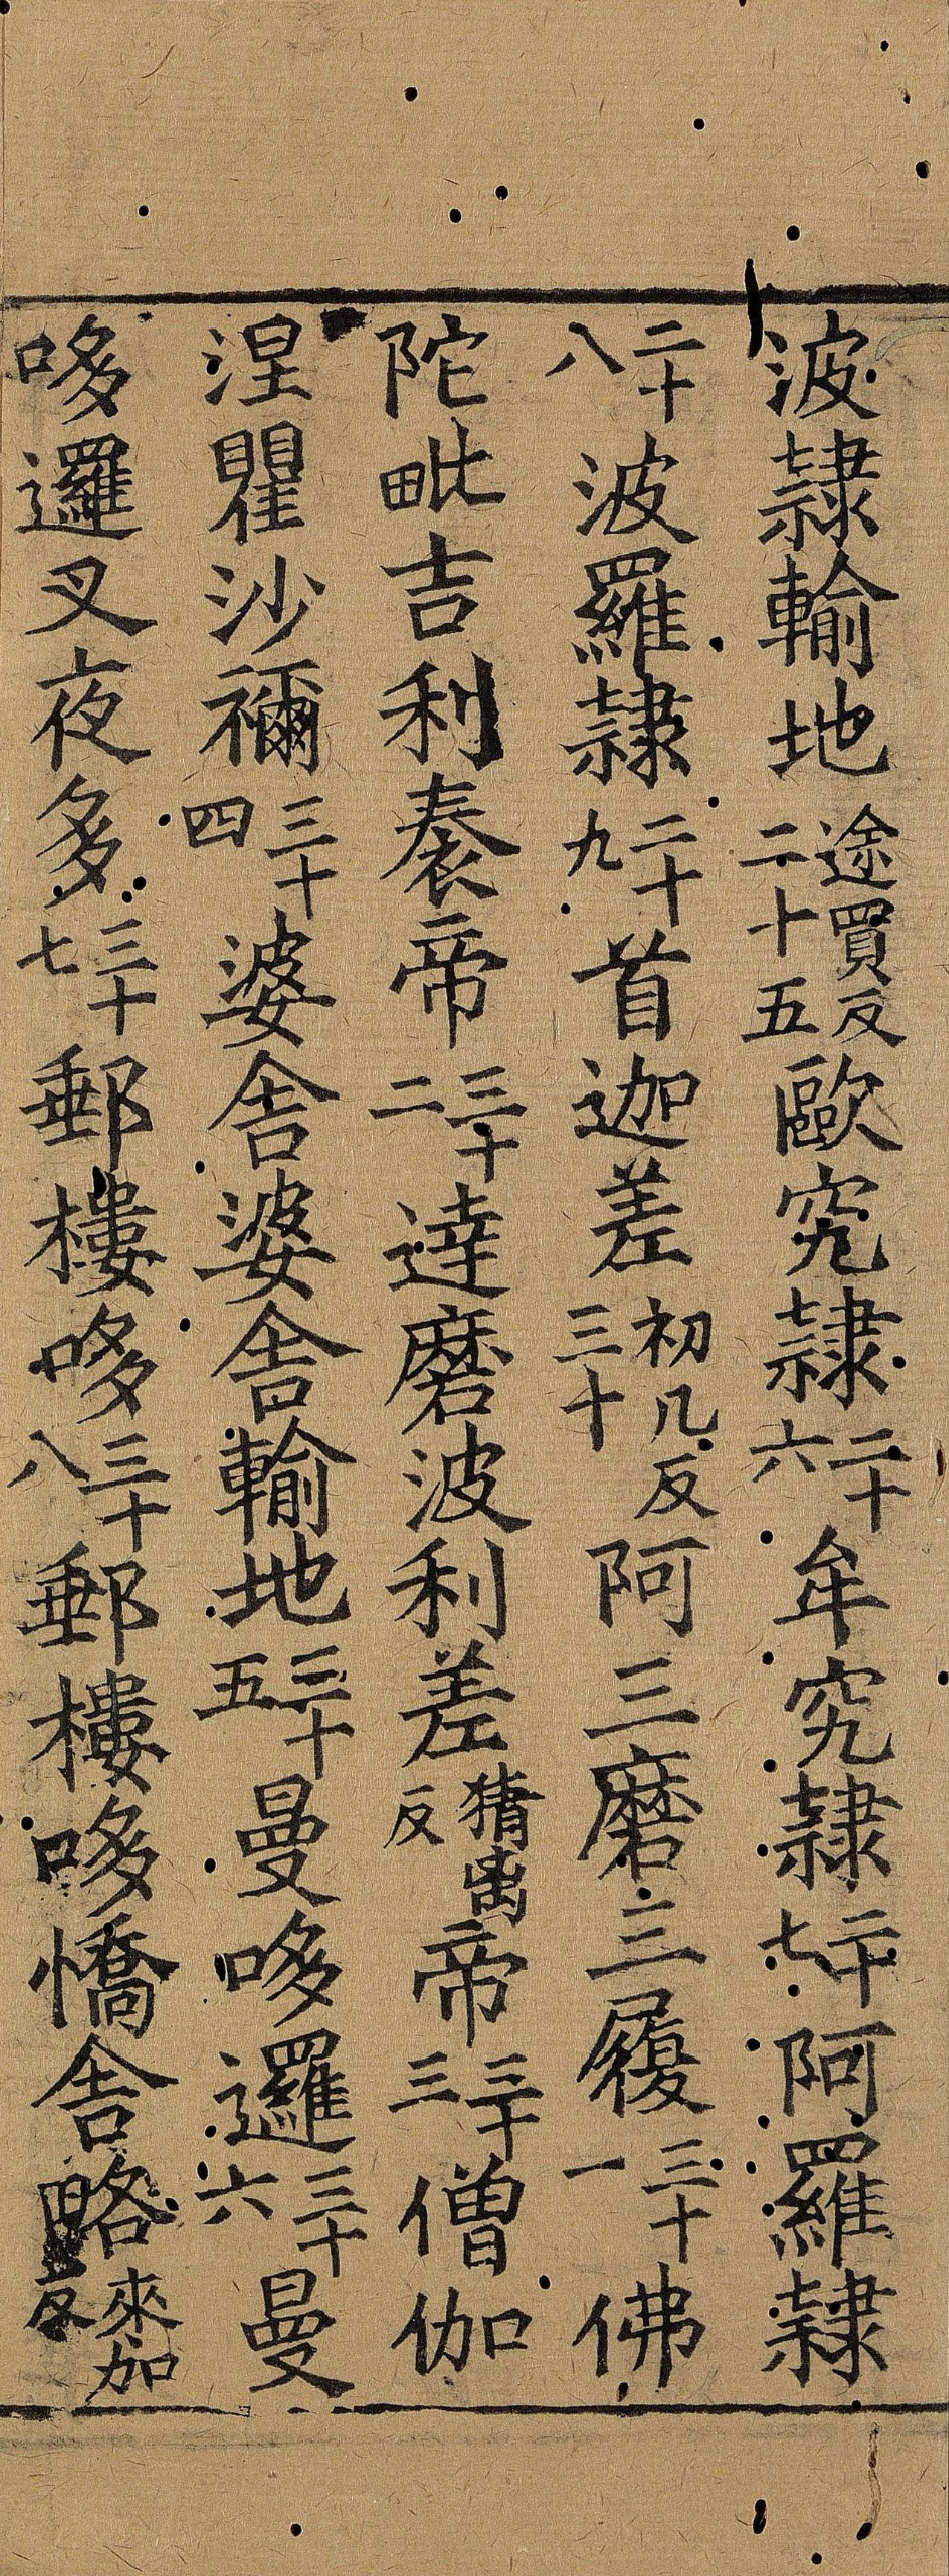 波隸輸地途買反二十五歐究隸二十六牟究隸二十七阿羅隸
二十八波羅隸二十九首迦差初几反三十阿三磨三履三十一佛
陀毗吉利袠帝三十二達磨波利差猪离反帝三十三僧伽
涅瞿沙禰三十四婆舍婆舍輸地三十五曼哆邏三十六曼
哆邏叉夜多三十七郵樓哆三十八郵樓哆憍舍略來加反